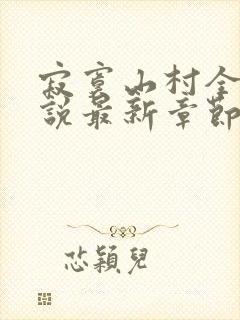 寂寞山村全
說最新章節
芯穎兒